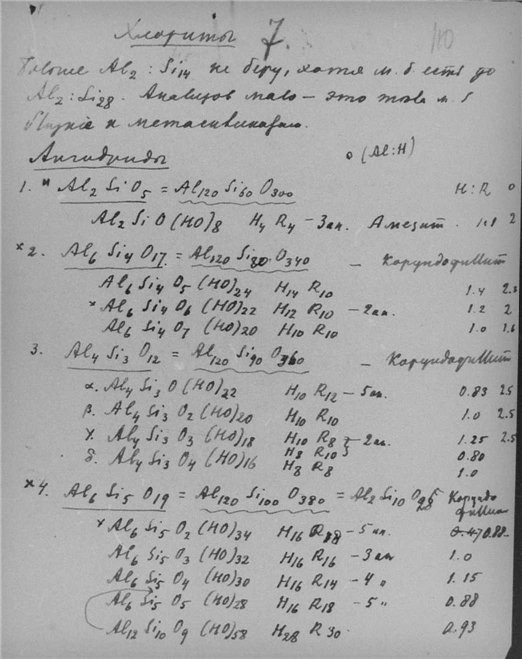 Хлориты 7.
110
больше Al2 : Si14 не беру, хотя м. б. есть до
Al2 : Si28. Анализов мало – это тоже м. б
близкие к метасиликатам.
Ангидриды
o (Al:H)
1. " Al2 Si O5 = Al120 Si60 O300 H:R o
Al2 Si O (HO)8 H4 R4 – 3 ан. Амезит. 1.1 2
x 2. Al6 Si4 O17 = Al120 Si80 O340 – Корундофиллит
Al6 Si4 O5 (HO)24 H14 R10 1.4 2.5
x Al6 Si4 O6 (HO)22 H12 R10 – 2 ан. 1.2 2
Al6 Si4 O7 (HO)20 H10 R10 1.0 1.6
3. Al4 Si3 O12 = Al120 Si90 O360 – Корундофиллит
α. Al4 Si3 O (HO)22 H10 R12 – 5 ан. 0.83 2.5
β. Al4 Si3 O2 (HO)20 H10 R10 1.0 2.5
γ. Al4 Si3 O3 (HO)18 H10 R8 – 2 ан. 1.25 2.5
H8 R10 0.80
δ. Al4 Si3 O4 (HO)16 H8 R8 1.0
x 4. Al6 Si5 O19 = Al120 Si100 O380 = Al2 Si10 O Корундофиллит
x Al6 Si5 O2 (HO)34 H16 R18 – 5 ан. 0.47 0.88.
Al6 Si5 O3 (HO)32 H16 R16 – 3 ан 1.0
Al6 Si5 O4 (HO)30 H16 R14 – 4 " 1.15
Al6 Si5 O5 (HO)28 H16 R18 – 5 " 0.88
Al12 Si10 O9 (HO)58 H28 R30 0.93